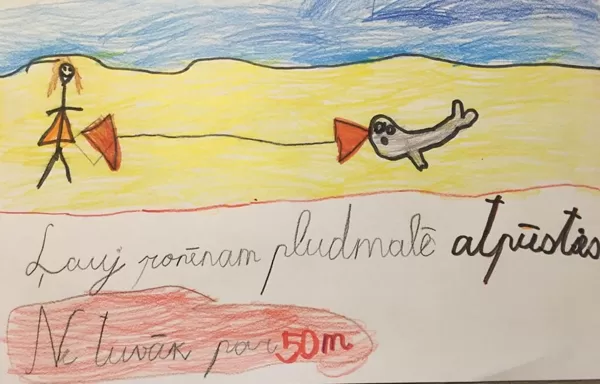 Ļauj ronēnam pludmalē atpūstās
Ne tuvāk par 50m